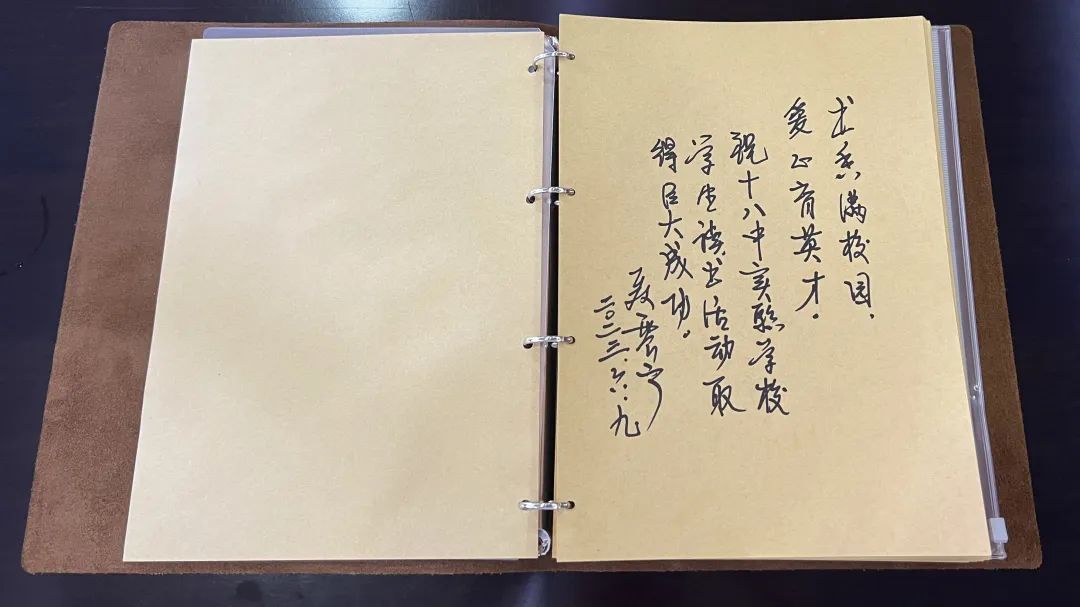 书香满校园，
爱心育英才。
祝十八中实验学校
学生读书活动取
得巨大成功。
聂震宁
二〇二三.六.九